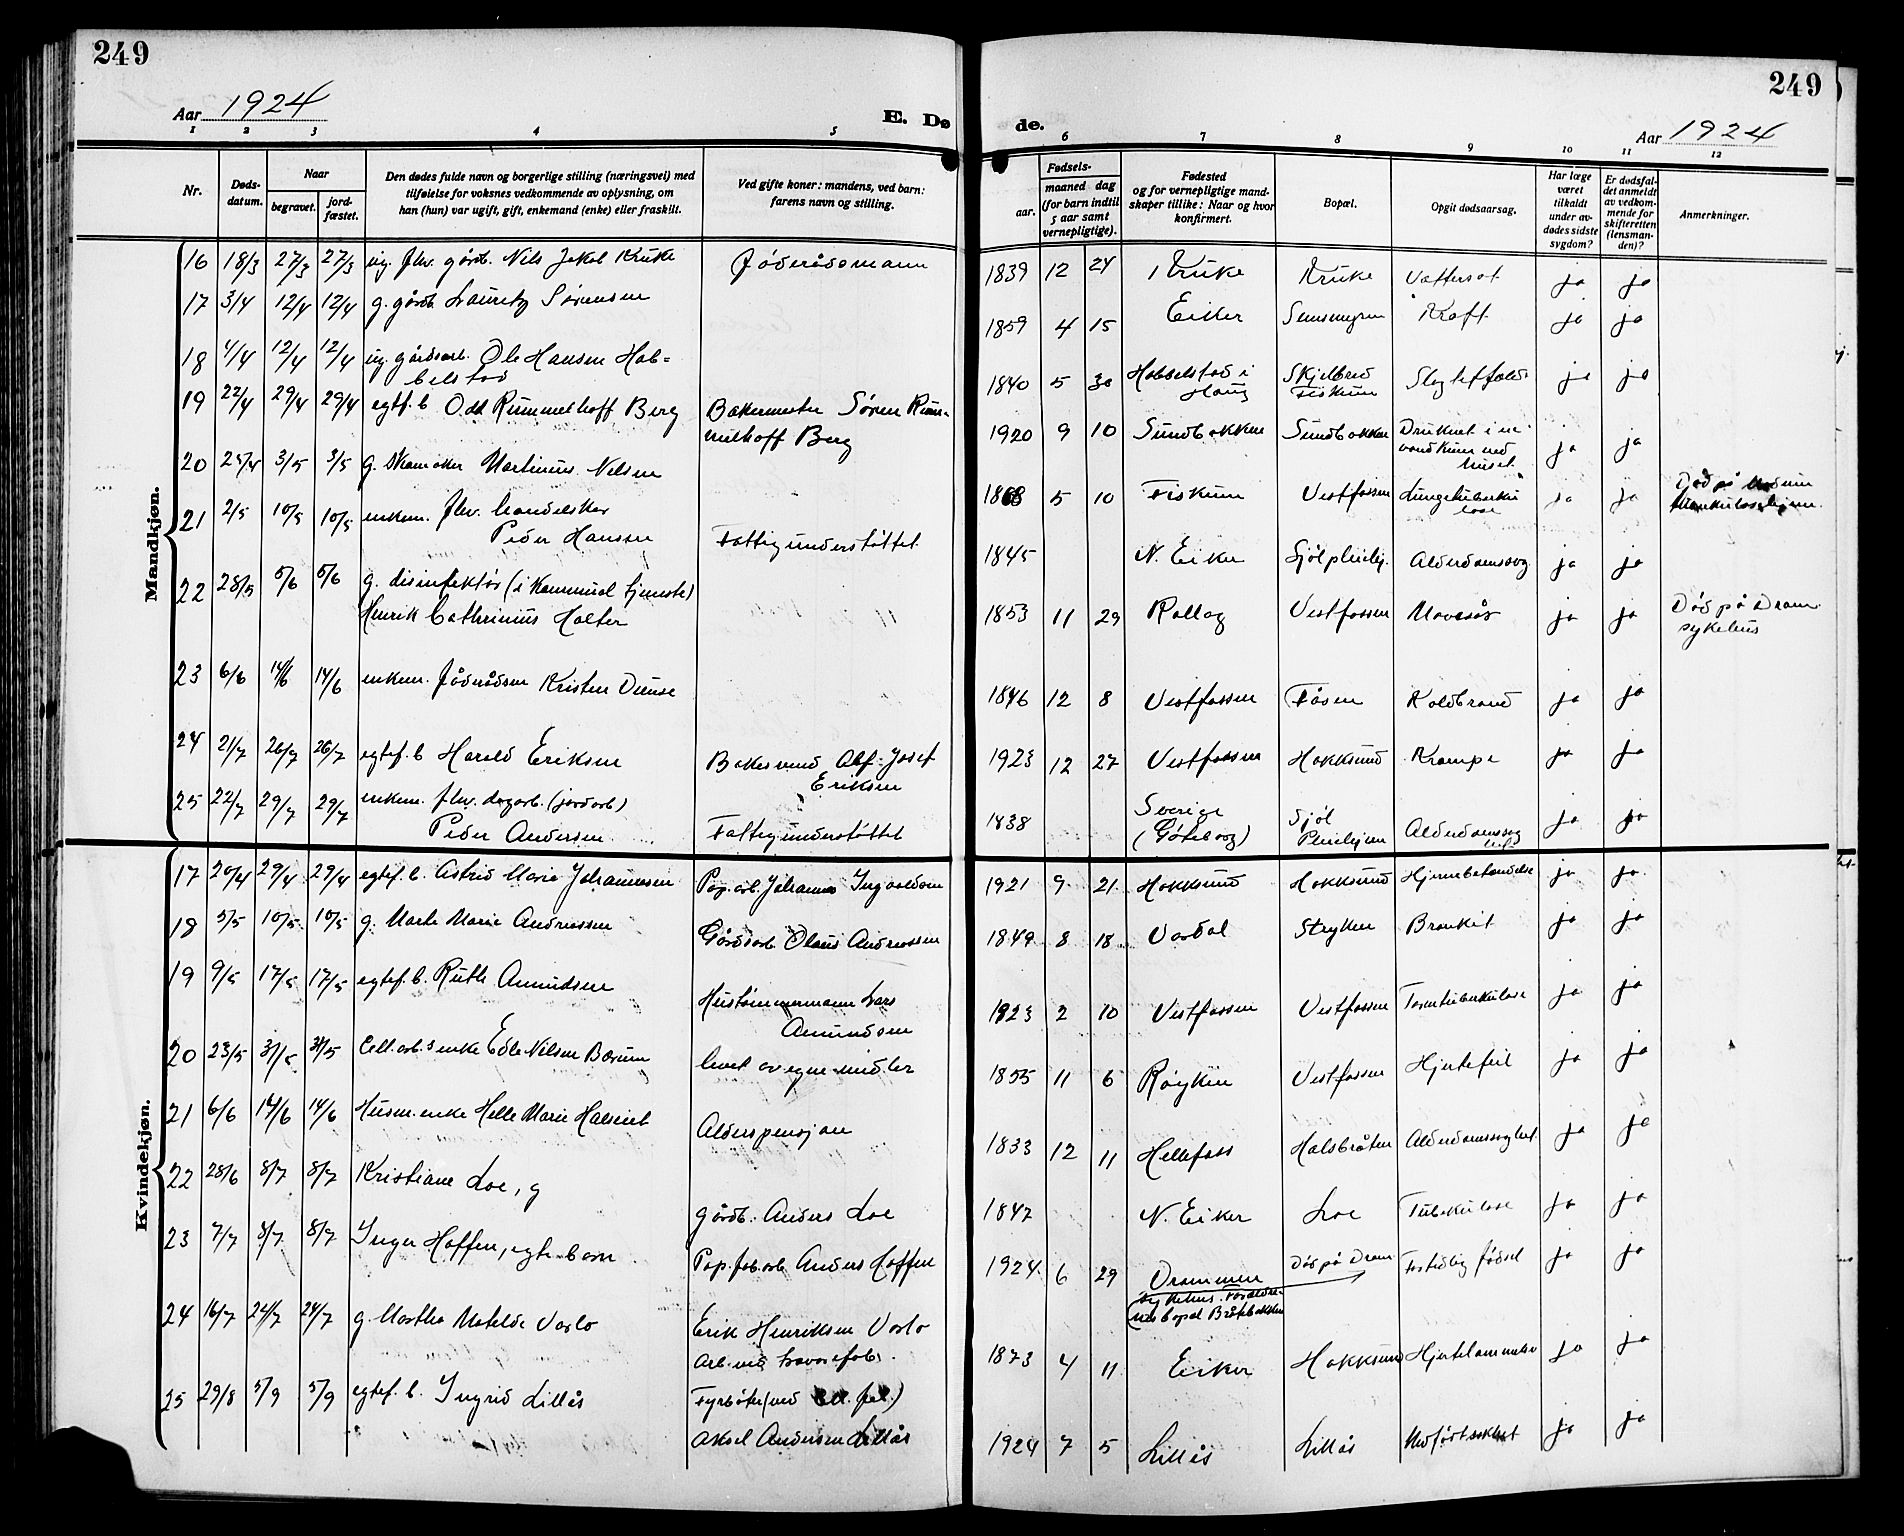 249
249
Aar 1924
E. Dø
de.
Aar 1924
1 2 3 4 5
6 7 8 9 10 11 12
Nr.
Døds-
datum.
Naar
begravet.
jord-
fæstet.
Den dødes fulde navn og borgerlige stilling (næringsvei) med
tilføielse for voksnes vedkommende av oplysning, om
han (hun) var ugift, gift, enkemand (enke) eller fraskilt.
Ved gifte koner: mandens, ved barn:
farens navn og stilling.
Fødsels-
aar.
maaned dag
(for barn indtil
5 aar samt
vernepligtige).
Fødested
og for vernepligtige mand-
skaper tillike: Naar og hvor
konfirmert.
Bopæl.
Opgit dødsaarsag.
Har læge
været
tilkaldt
under av-
dødes sidste
sygdom?
Er dødsfal-
det anmeldt
av vedkom-
mende for
skifteretten
(lensman-
den)?
Anmerkninger.
Mandkjøn.
16 18/3 27/3 27/3 ug. fhv. gårdb. Nils Jakob Kruke
1839 12 24 Kruke Kruke Vattersot ja ja
17 3/4 12/4 12/4 g. gårdb. Lauritz Sørensen
1859 4 15 Eiker Kræft ja ja
18 4/4 12/4 12/4 ug. gårdsarb. Ole Hansen Hob-
belstad
1840 5 30 Hobbelstad i
Haug
Skjelbred
Fiskum
ja ja
19 22/4 29/4 29/4 egtef. b Odd Rummelhoff Berg Bakermester Søren Rum-
melhoff Berg
1920 9 10 Sundbakken Sundbakken Druknet i en
vandkum ved
huset.
ja ja
20 25/4 3/5 3/5 g. skomaker Martinius Nelsen
1868 5 10 Fiskum Vestfossen Lungetuberku
lose
ja ja
21 2/5 10/5 10/5 enkem. fhv. handelskar
Peder Hansen Fattigunderstøttet
1845 N. Eiker Alderdomssvag ja ja
22 28/5 5/6 5/6 g. disinfektør (i kommunal tjeneste)
Henrik Cathrinius Holter
1853 11 29 Rollag Vestfossen Mavesår ja ja Død på Dram.
sykehus
23 6/6 14/6 14/6 enkem. Kristen
1846 12 8 Vestfossen Fåsen Koldbrand ja ja
24 21/7 26/7 26/7 egtef. b Harald Eriksen Bakersvend Alf Josef
Eriksen
1923 12 27 Vestfossen Hokksund Krampe ja ja
25 22/7 29/7 29/7 enkem. fhv. dagarb. (jordarb)
Peder Andersen Fattigunderstøttet
1838 Sverige
(Göteborg)
Sjøl
Pleiehjem
Alderdomssvag
hed
ja ja
Kvindekjøn.
17 20/4 29/4 29/4 egtef. b. Astrid Marie Johannessen Pap. arb Johannes Ingvaldsen
1921 9 21 Hokksund Hokksund ja ja
18 5/5 10/5 10/5 g. Marte Marie Andreassen Gårdsarb Olaus Andreassen
1849 8 18 Vardal Stryken Bronkit ja ja
19 9/5 17/5 17/5 egtef. b. Ruth Amundsen Hustømmermann Lars
Amundsen
1923 2 10 Vestfossen Vestfossen Tarmtuberkulose ja ja
20 23/5 31/5 31/5 Cell. arb.s enke Edle Nilsen Bærum levet av egne midler
1855 11 6 Røyken Vestfossen Hjertefeil ja ja
21 6/6 14/6 14/6 Husm. enke Helle Marie Alderspensjon
1833 12 11 Hellefoss Halsbråten Alderdomssvaghet ja ja
22 28/6 8/7 8/7 Kristiane Loe, g gårdb. Anders Loe
1847 N. Eiker Loe Tuberkulose ja ja
23 7/7 8/7 8/7 Inger Hoffen, egte barn Pap. fab. arb Anders Hoffen
1924 6 29 Drammen
sykehus. Foreldre-
nes bopæl Bråtebakken
Død på Dram. For tidlig fødsel ja ja
24 16/7 24/7 24/7 g. Martha Matilde Varlo Erik Henriksen Varlo
Arb. ved
1873 4 11 Eiker Hokksund Hjertelammelse ja ja
25 29/8 5/9 5/9 egtef. b. Ingrid Lillås Fyrbøter (ved Cell. fab.)
Aksel Andersen Lillås
1924 7 5 Lillås Lillås Medfødt svakhet ja ja